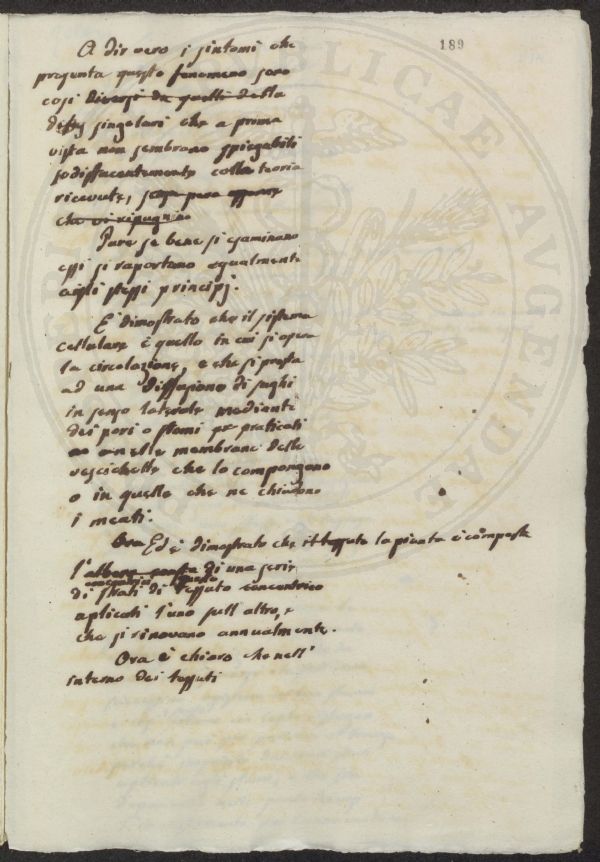 189
A dir vero i sintomi che
presenta questo fenomeno sono
così diversi da quelli della
singolari che a prima
vista non sembrano spiegabili
sodisfacentemente colla teoria
ricevuta, pare
che vi ripugnino
Pure se bene si esaminano
essi si raportano egualmente
agli stessi principj.
È dimostrato che il sistema
cellulare è quello in cui si opera
la circolazione, e che si presta
ad una diffusione di sughi
in senso laterale mediante
dei pori o stomi praticati
o nelle membrane delle
vescichette che lo compongono
o in quelle che ne chiudono
i meati.
Ora Ed è dimostrato che il tessuto la pianta è composta
l'albero di una serie
di strati di tessuto concentrico
aplicati l'uno sull'altro, e
che si rinovano annualmente.
Ora è chiaro che nell'
interno dei tessuti